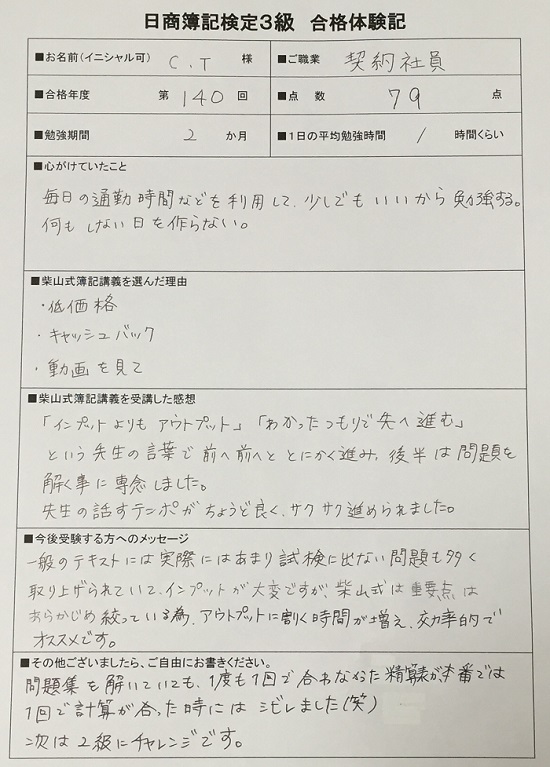 日商簿記検定3級 合格体験記
■お名前(イニシャル可) C.T 様 ■ご職業 契約社員
■合格年度 第 140 回 ■点 数 79 点
■勉強期間 2 か月 ■1日の平均勉強時間 1 時間くらい
■心がけていたこと
毎日の通勤時間などを利用して、少しでもいいから勉強する。
何もしない日を作らない。
■柴山式簿記講義を選んだ理由
・低価格
・キャッシュバック
・動画を見て
■柴山式簿記講義を受講した感想
「インプットよりもアウトプット」「わかったつもりで先へ進む」
という先生の言葉で前へ前へととにかく進み、後半は問題を
解く事に専念しました。
先生の話すテンポがちょうど良く、サクサク進められました。
■今後受験する方へのメッセージ
一般のテキストには実際にはあまり試検に出ない問題も多く
取り上げられていて、インプットが大変ですが、柴山式は重要点は
あらかじめ絞っている為、アウトプットに割く時間が増え、効率的で
オススメです。
■その他ございましたら、ご自由にお書きください。
問題集を解いていても、1度も1回で合わなかった精算表が、本番では
1回で計算が合った時にはシビレました(笑)
次は2級にチャレンジです。